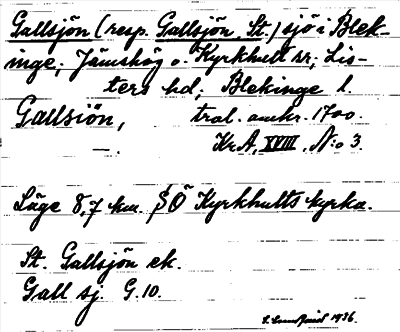 Gallsjön (resp. Gallsjön St.) sjö i Blek-
inge; Jämshög o. Kyrkhult sr; Lis-
ters hd; Blekinge l.
Gallsiön, tral. omkr. 1700.
—. Kr A, XVIII, N:o 3.
Läge 8,7 km. SÖ Kyrkhults kyrka.
St. Gallsjön ek.
Gall sj. G.10.
1936.